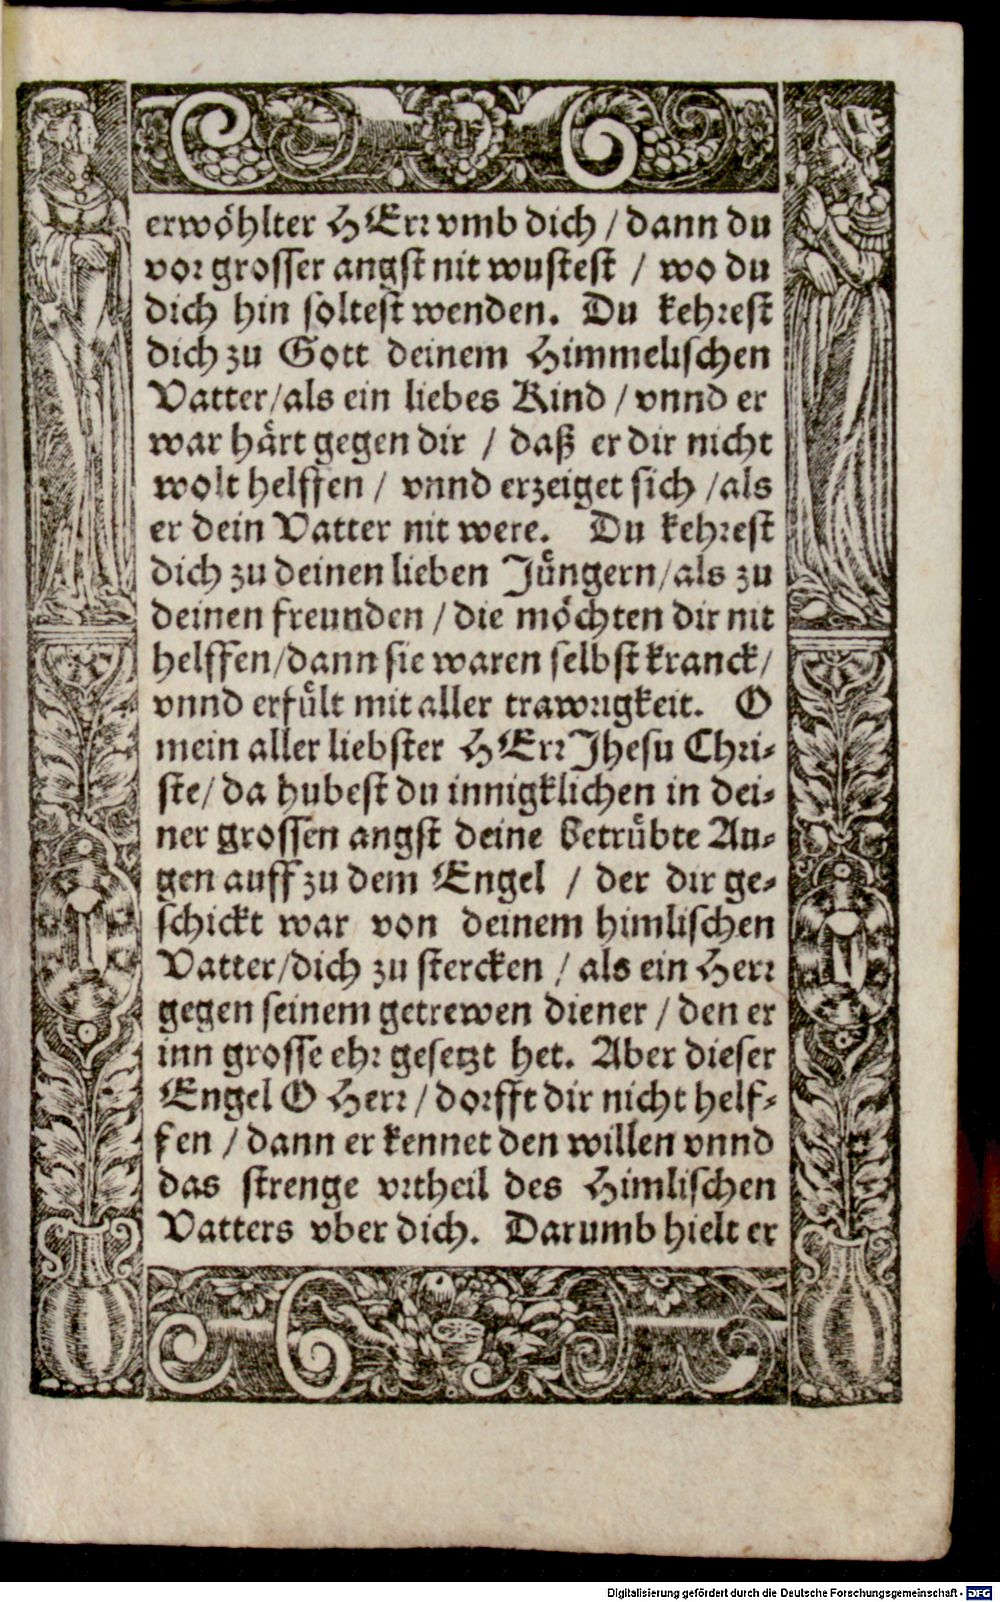 erwöhlter HErr vmb dich / dann du
vor grosser angst nit wustest / wo du
dich hin soltest wenden. Du kehrest
dich zu Gott deinem Himmelischen
Vatter / als ein liebes Kind / vnnd er
war härt gegen dir / daß er dir nicht
wolt helffen / vnnd erzeiget sich / als
er dein Vatter nit were. Du kehrest
dich zu deinen lieben Jüngern / als zu
deinen freunden / die möchten dir nit
helffen / dann sie waren selbst kranck /
vnnd erfült mit aller trawrigkeit. O
mein aller liebster HErr Jhesu Chri-
ste / da hubest du innigklichen in dei-
ner grossen angst deine betrübte Au-
gen auff zu dem Engel / der dir ge-
schickt war von deinem himlischen
Vatter / dich zu stercken / als ein Herr
gegen seinem getrewen diener / den er
inn grosse ehr gesetzt het. Aber dieser
Engel O Herr / dorfft dir nicht helf-
fen / dann er kennet den willen vnnd
das strenge vrtheil des Himlischen
Vatters vber dich. Darumb hielt er
Digitalisierung gefördert durch die Deutsche Forschungsgemeinschaft - DFG